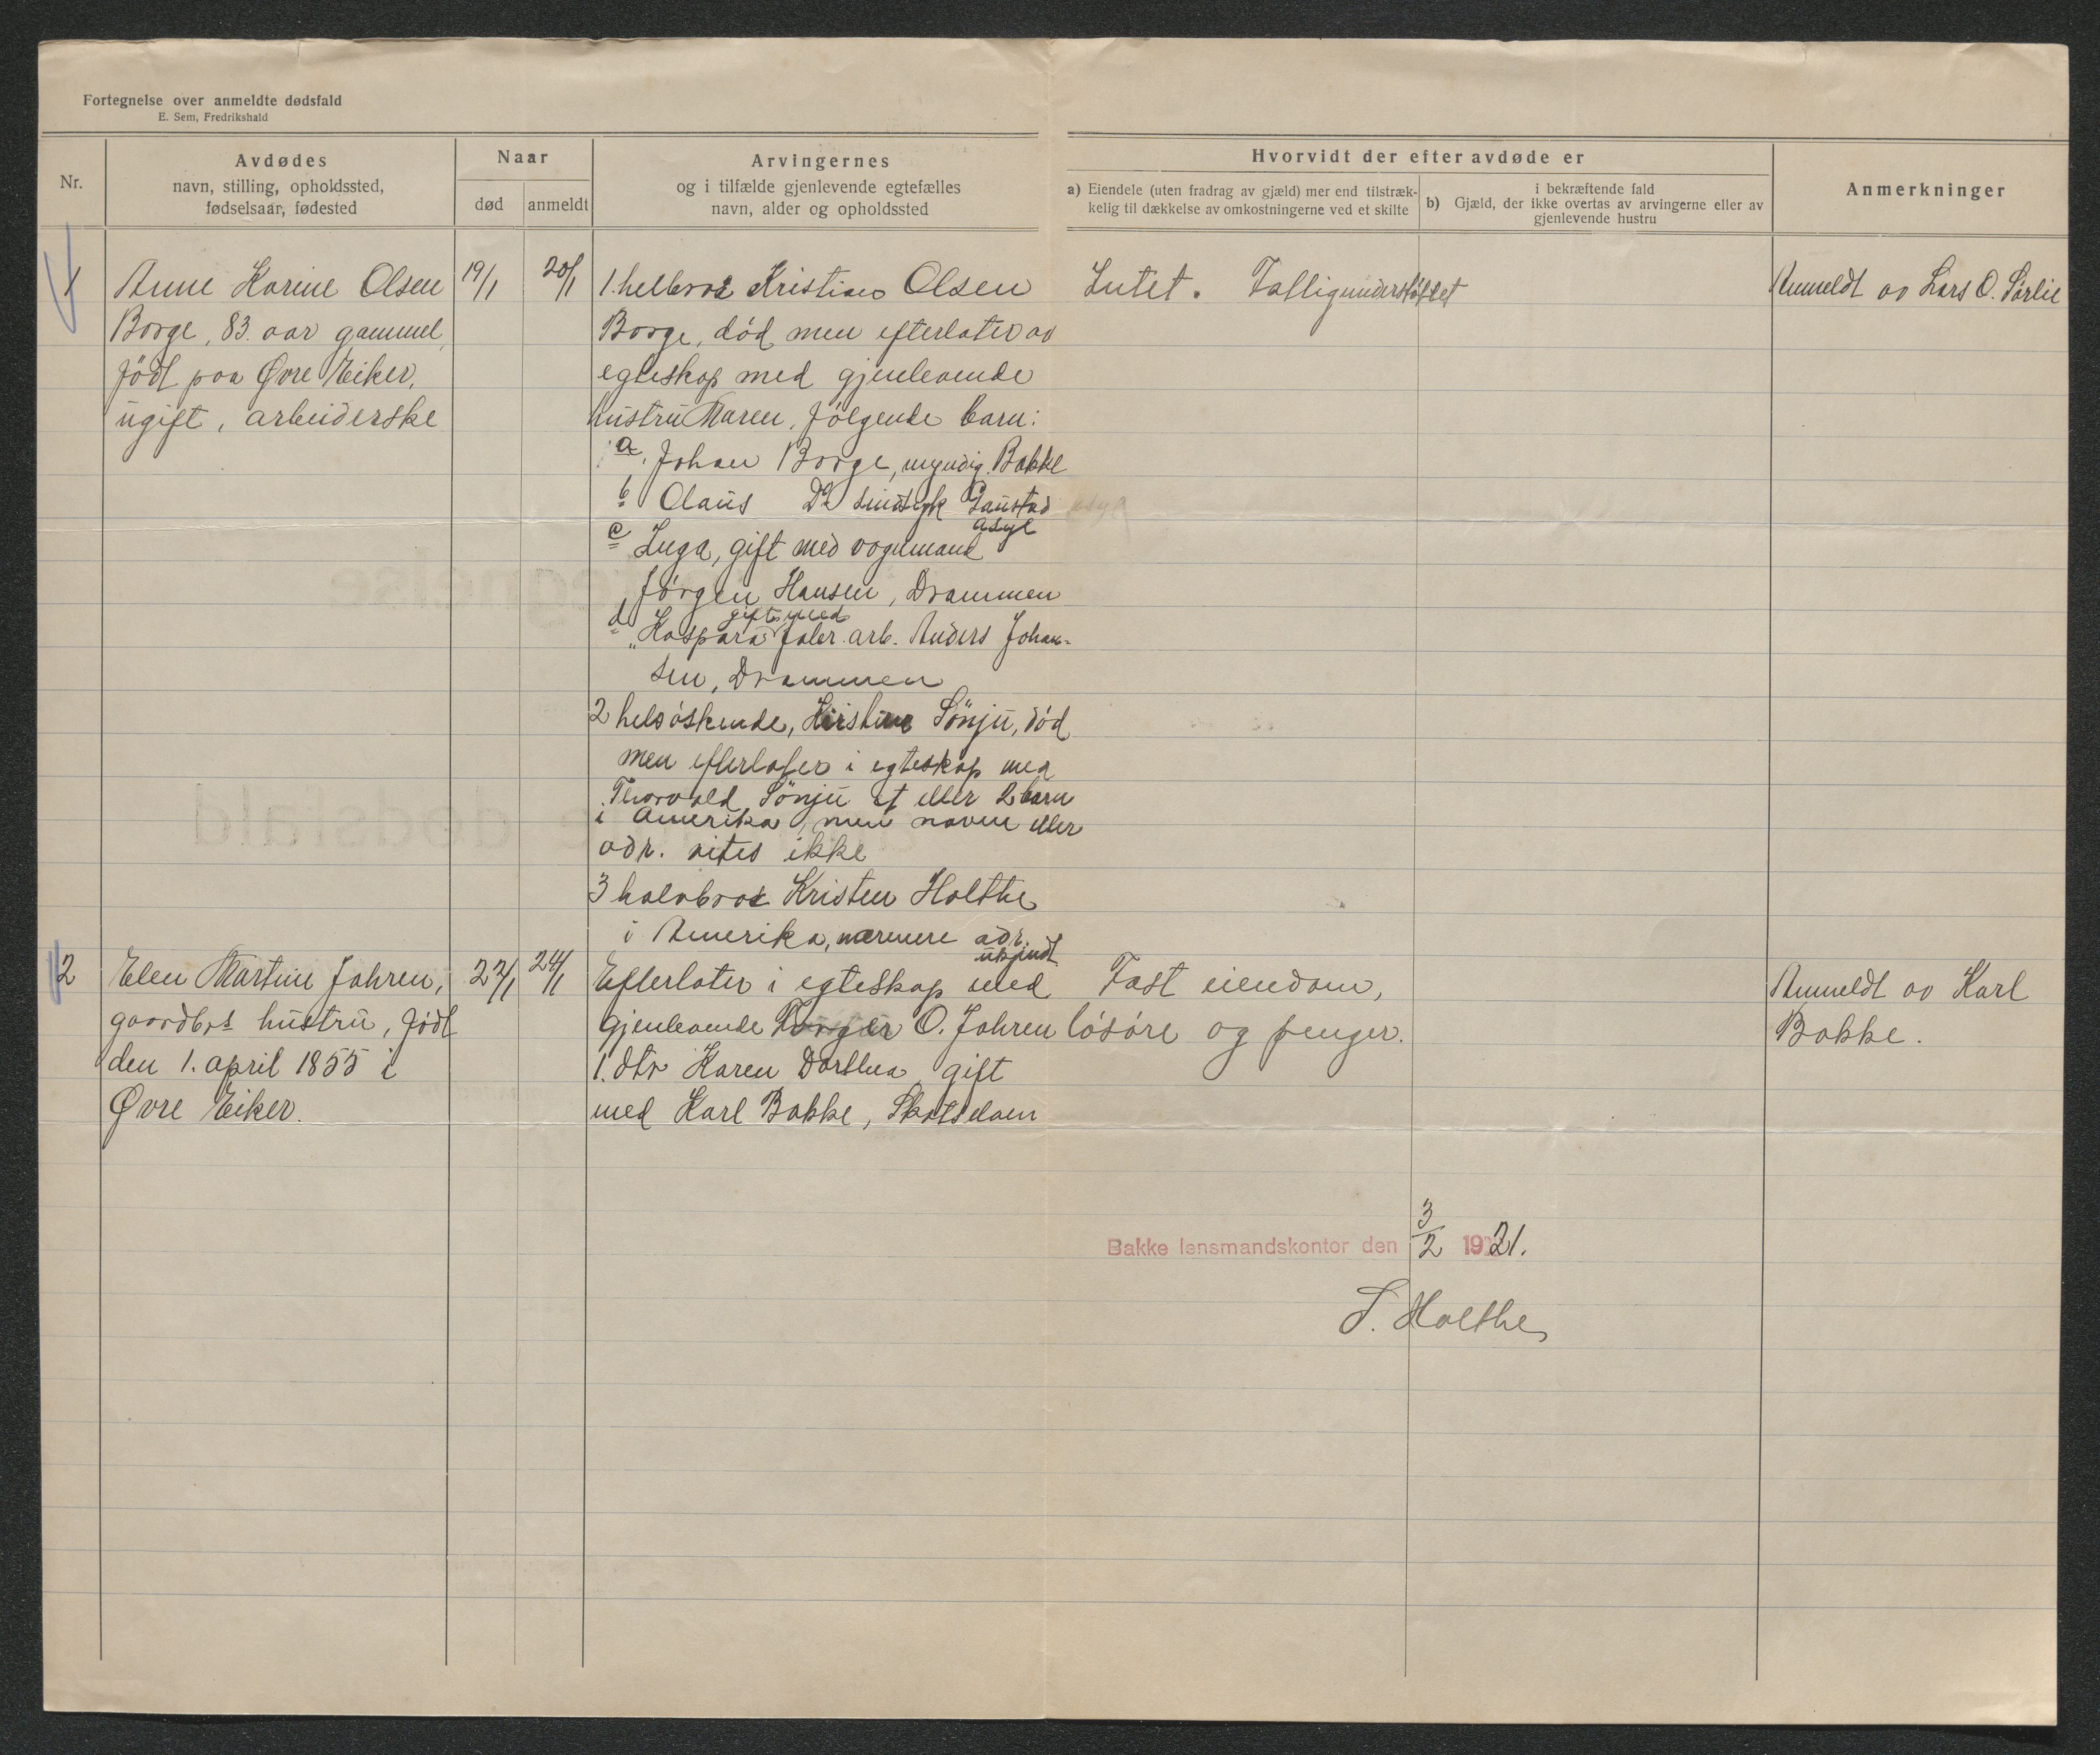 Fortegnelse over anmeldte dødsfald
E. Sem, Fredrikshald
Nr.
Avdødes
navn, stilling, opholdssted,
fødselsaar, fødested
Naar
død
anmeldt
Arvingernes
og i tilfælde gjenlevende egtefælles
navn, alder og opholdssted
Hvorvidt der efter avdøde er
a) Eiendele (uten fradrag av gjæld) mer end tilstræk-
kelig til dækkelse av omkostningerne ved et skifte
i bekræftende fald
b) Gjæld, der ikke overtas av arvingerne eller av
gjenlevende hustru
Anmerkninger
1
Anne Karine Olsen
Borge, 83 aar gammel,
født paa Øvre Eiker,
ugift, arbeiderske
19/1
20/1
1. helbror Kristian Olsen
Borge, død men efterlater av
egteskap med gjenlevende
hustru Maren, følgende barn:
a, Johan Borge, myndig, Bakke
b Olaus Do sindsyk Gaustad
asyl
c Inga, gift med vognmand
Jørgen Hansen, Drammen
gift med
d Kaspara faler. arb. Anders Johan-
sen, Drammen
2 helsøskende, Kirstine Sönju, død
men efterlater i egteskap med
Thorvald Sönju et eller 2 barn
i Amerika, men navne eller
adr. vites ikke
3 halvbror Kristen Holthe
i Amerika, nærmere adr.
ukjendt
Intet. Fattigunderstøttet
Anmeldt av Lars O. Sørlie
2
Elen Martine Jahren,
gaardbrs hustru, født
den 1. april 1855 i
Øvre Eiker.
22/1
24/1
Efterlater i egteskap med
gjenlevende Torger O. Jahren
1. dtr Karen Dorthea gift
med Karl Bakke, Skotselven
Fast eiendom,
løsøre og penger.
Anmeldt av Karl
Bakke.
Bakke lensmandskontor den 3/2 1921.
T. Holthe